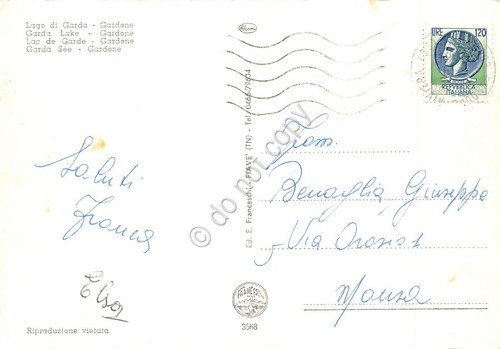 Lago di Garda - Gardone
Garda Lake - Gardone
Lac de Garde - Gardone
Garda See - Gardone
LIRE 120
Saluti
Franca
Elsa
Fam.
Benaglia Giuseppe
Via Orosio 1
Monza
Ed. E. Franceschi - FIAVE' (TN) - Tel. 0465-79634
© do not copy
3568
Riproduzione vietata